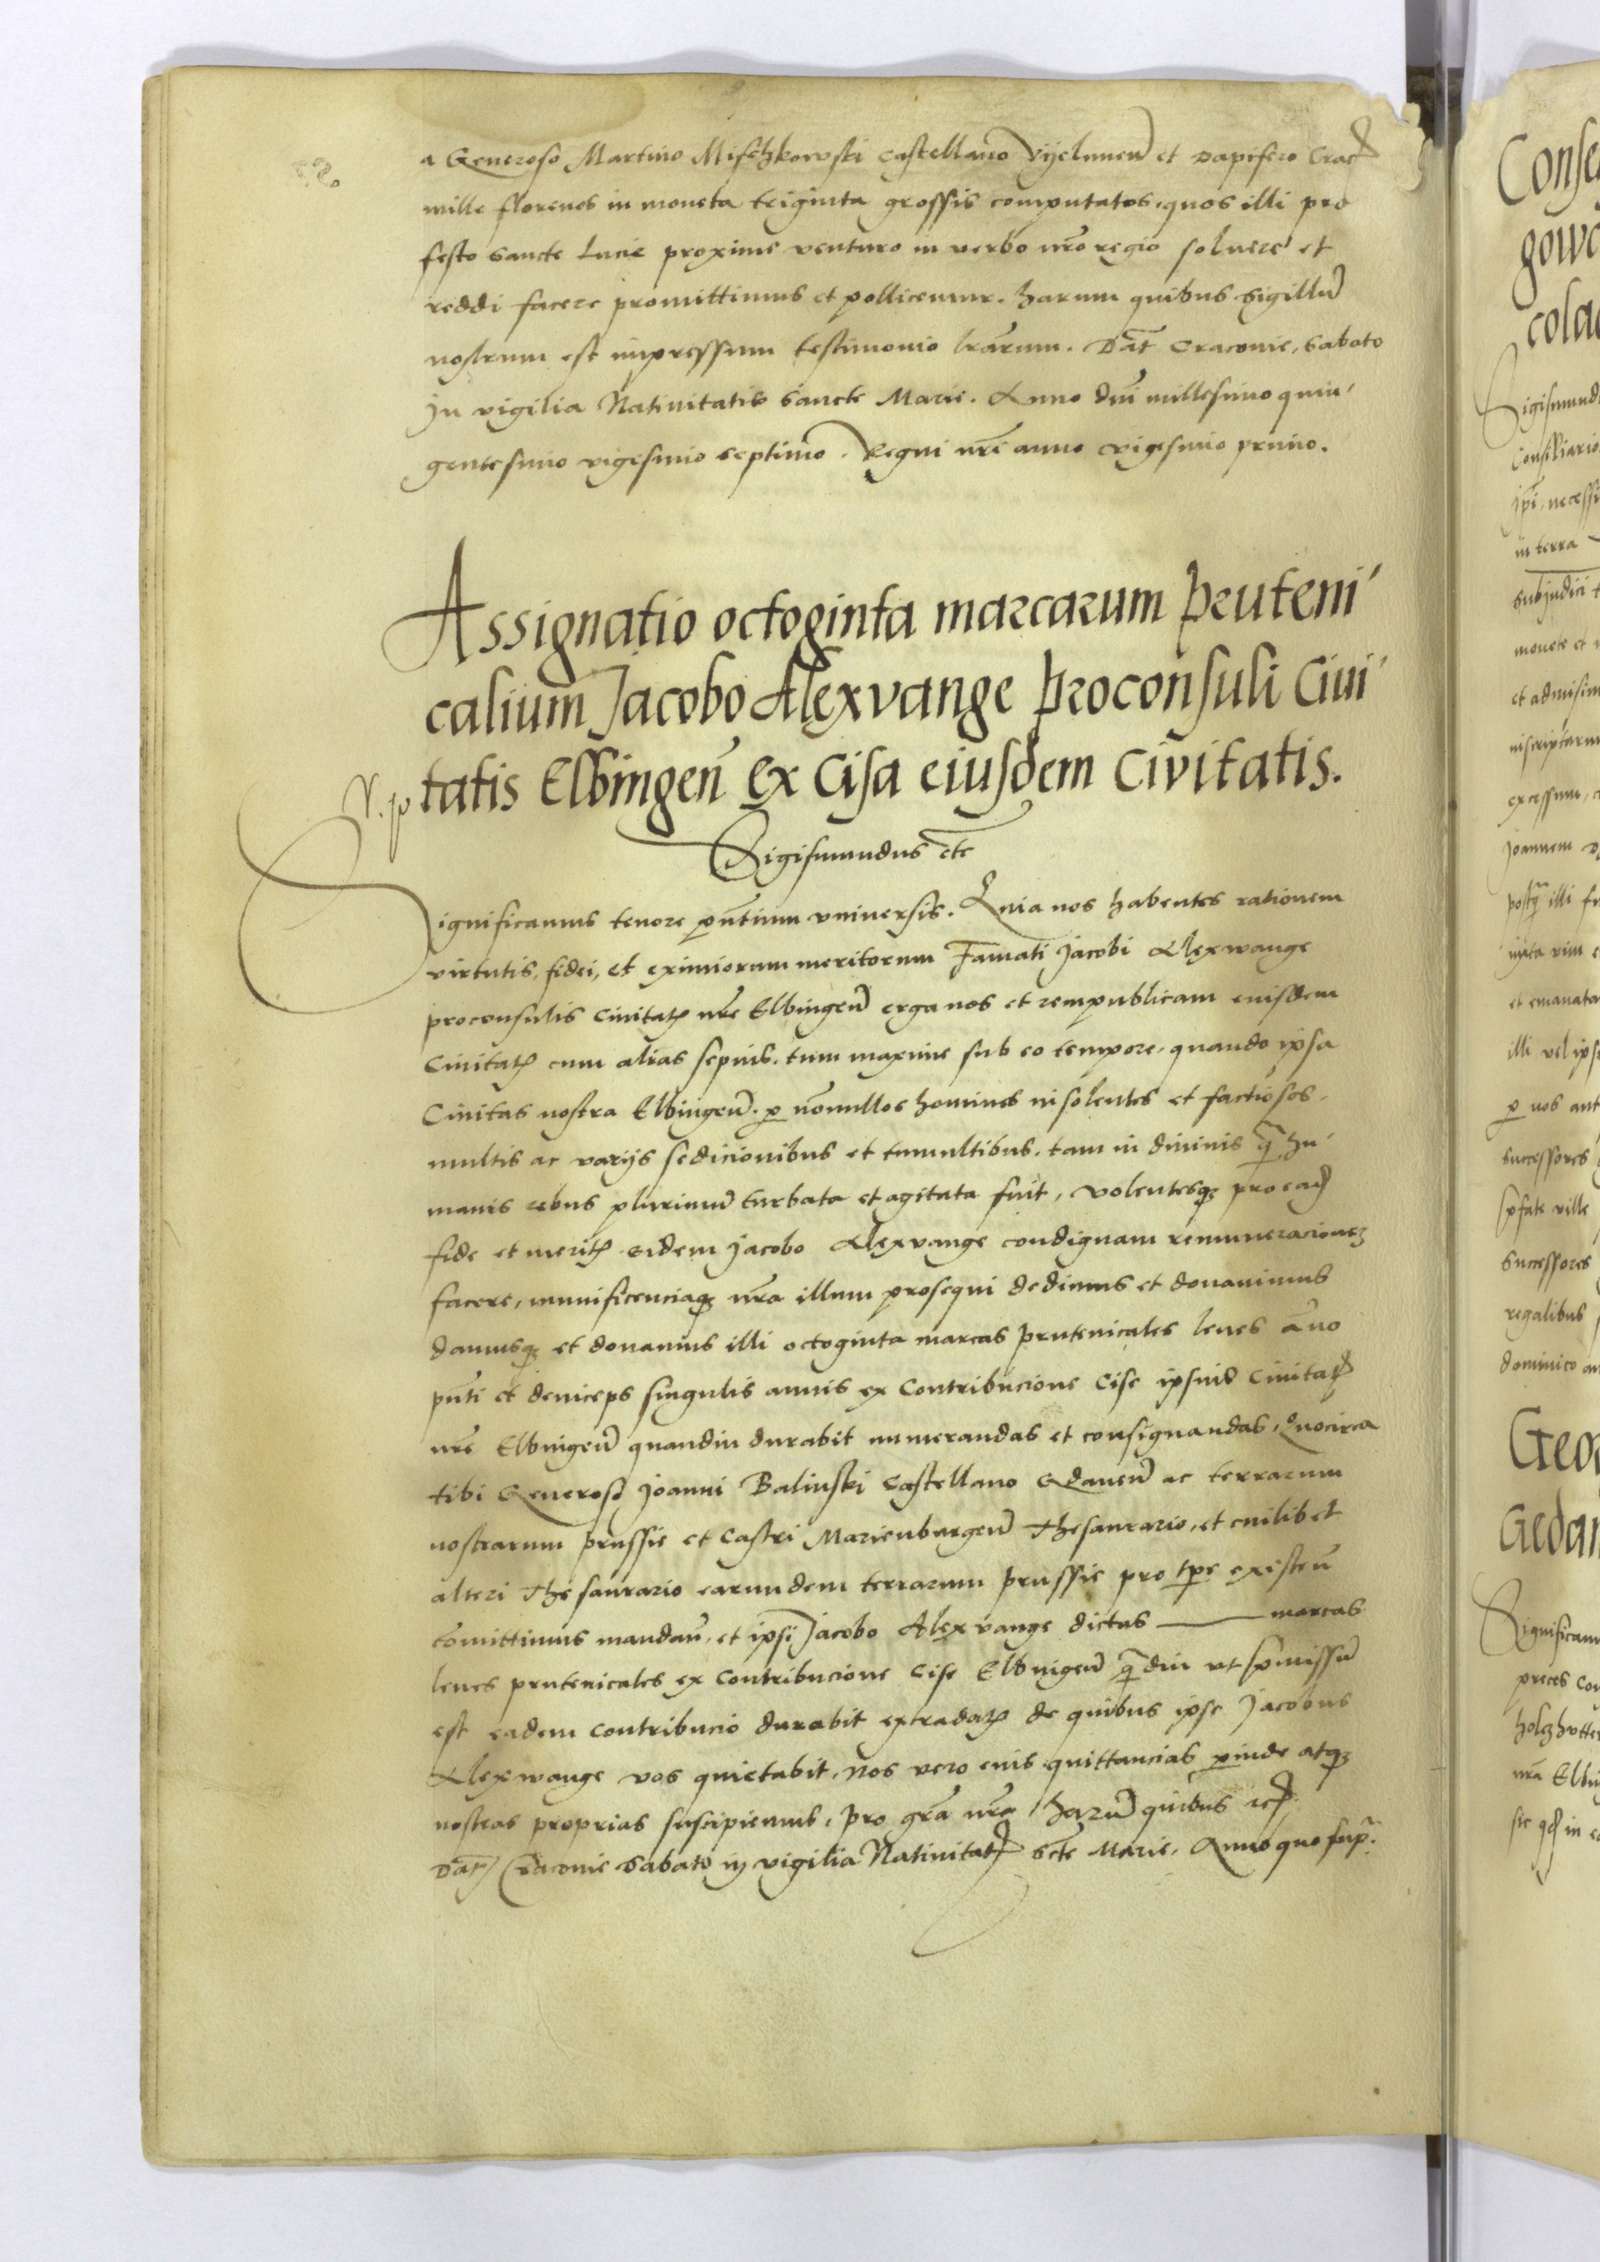 a Generoso Martino Mischkowski Castellano Vyelunen et Dapifero Crac
mille florenos in moneta triginta grossis computatos, quos illi pro
festo sancte Lucie proxime venturo in verbo nro regio solvere et
reddi facere promittimus et pollicemur. harum quibus sigillu
nostrum est impressum testimonio lrarum. Dat Cracovie, sabato
in vigilia Nativitatis sancte Marie. Anno dni millesimo quin-
gentesimo vigesimo septimo. Regni nri anno vigesimo primo.
Assignatio octoginta marcarum pruteni-
calium Jacobo Alexvange proconsuli Civi-
tatis Elbingen ex Cisa eiusdem Civitatis.
Sigismundus etc
Significamus tenore pntium universis. Quia nos habentes rationem
virtutis, fidei, et eximiorum meritorum Famati Jacobi Alexwange
proconsulis Civitatis nre Elbingen erga nos et rempublicam eiusdem
Civitatis cum alias sepius, tum maxime sub eo tempore, quando ipsa
Civitas nostra Elbingen. p nonnullos homines insolentes et factiosos,
multis ac varijs sedicionibus et tumultibus, tam in divinis qz hu-
manis rebus plurimu turbata et agitata fuit, volentesqz pro ead
fide et meritis eidem Jacobo Alexvange condignam remuneracionez
facere, munificenciaqz nra illum prosequi dedimus et donavimus
damusqz et donamus illi octoginta marcas prutenicales leves Anno
pnti et deinceps singulis annis ex Contribucione Cise ipsius Civitatis
nre Elbingen quandiu durabit numerandas et consignandas, Quocirca
tibi Generoso Joanni Balinski Castellano Gdanen ac terrarum
nostrarum prussie et Castri Marienburgen Thesaurario, et cuilibet
alteri Thesaurario earundem terrarum prussie pro tpe existen
comittimus mandan, et ipsi Jacobo Alexvange dictas — marcas
leves prutenicales ex Contribucione Cise Elbingen qzdiu ut pmissu
est eadem Contribucio durabit extradatis de quibus ipse Jacobus
Alexwange vos quietabit, nos vero eius quittancias pinde atqz
nostras proprias suscipiemus, pro gra nra, harum quibus etc
Dat Cracovie Sabato in vigilia Nativitatis scte Marie, Anno quo sup.